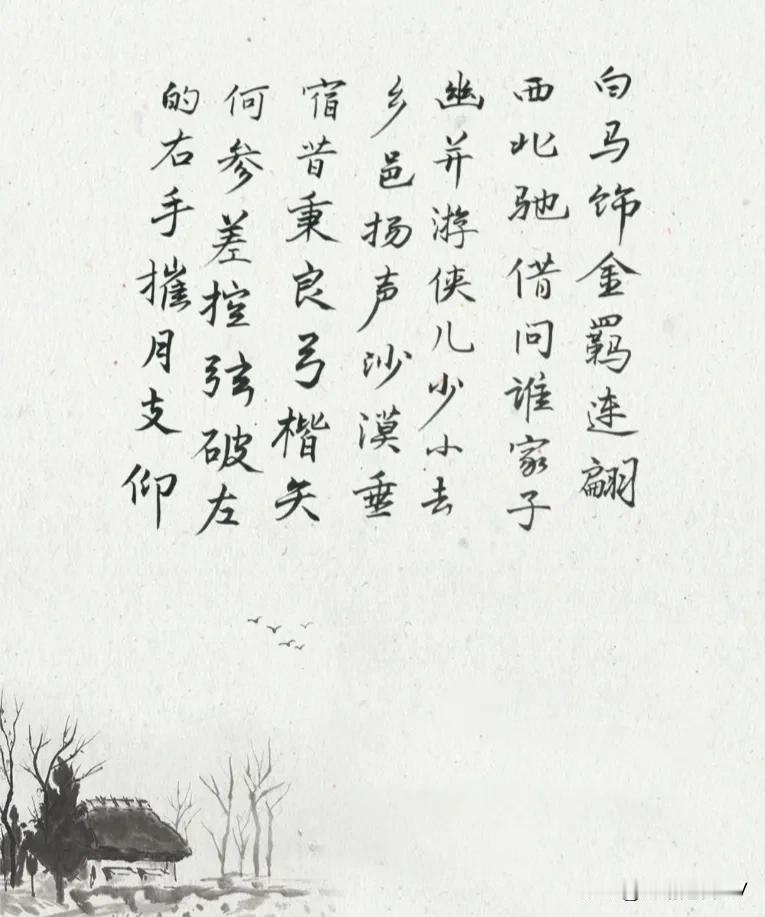 白马饰金羁连翩
西北驰借问谁家子
幽并游侠儿少小去
乡邑扬声沙漠垂
宿昔秉良弓楛矢
何参差控弦破左
的右手摧月支仰